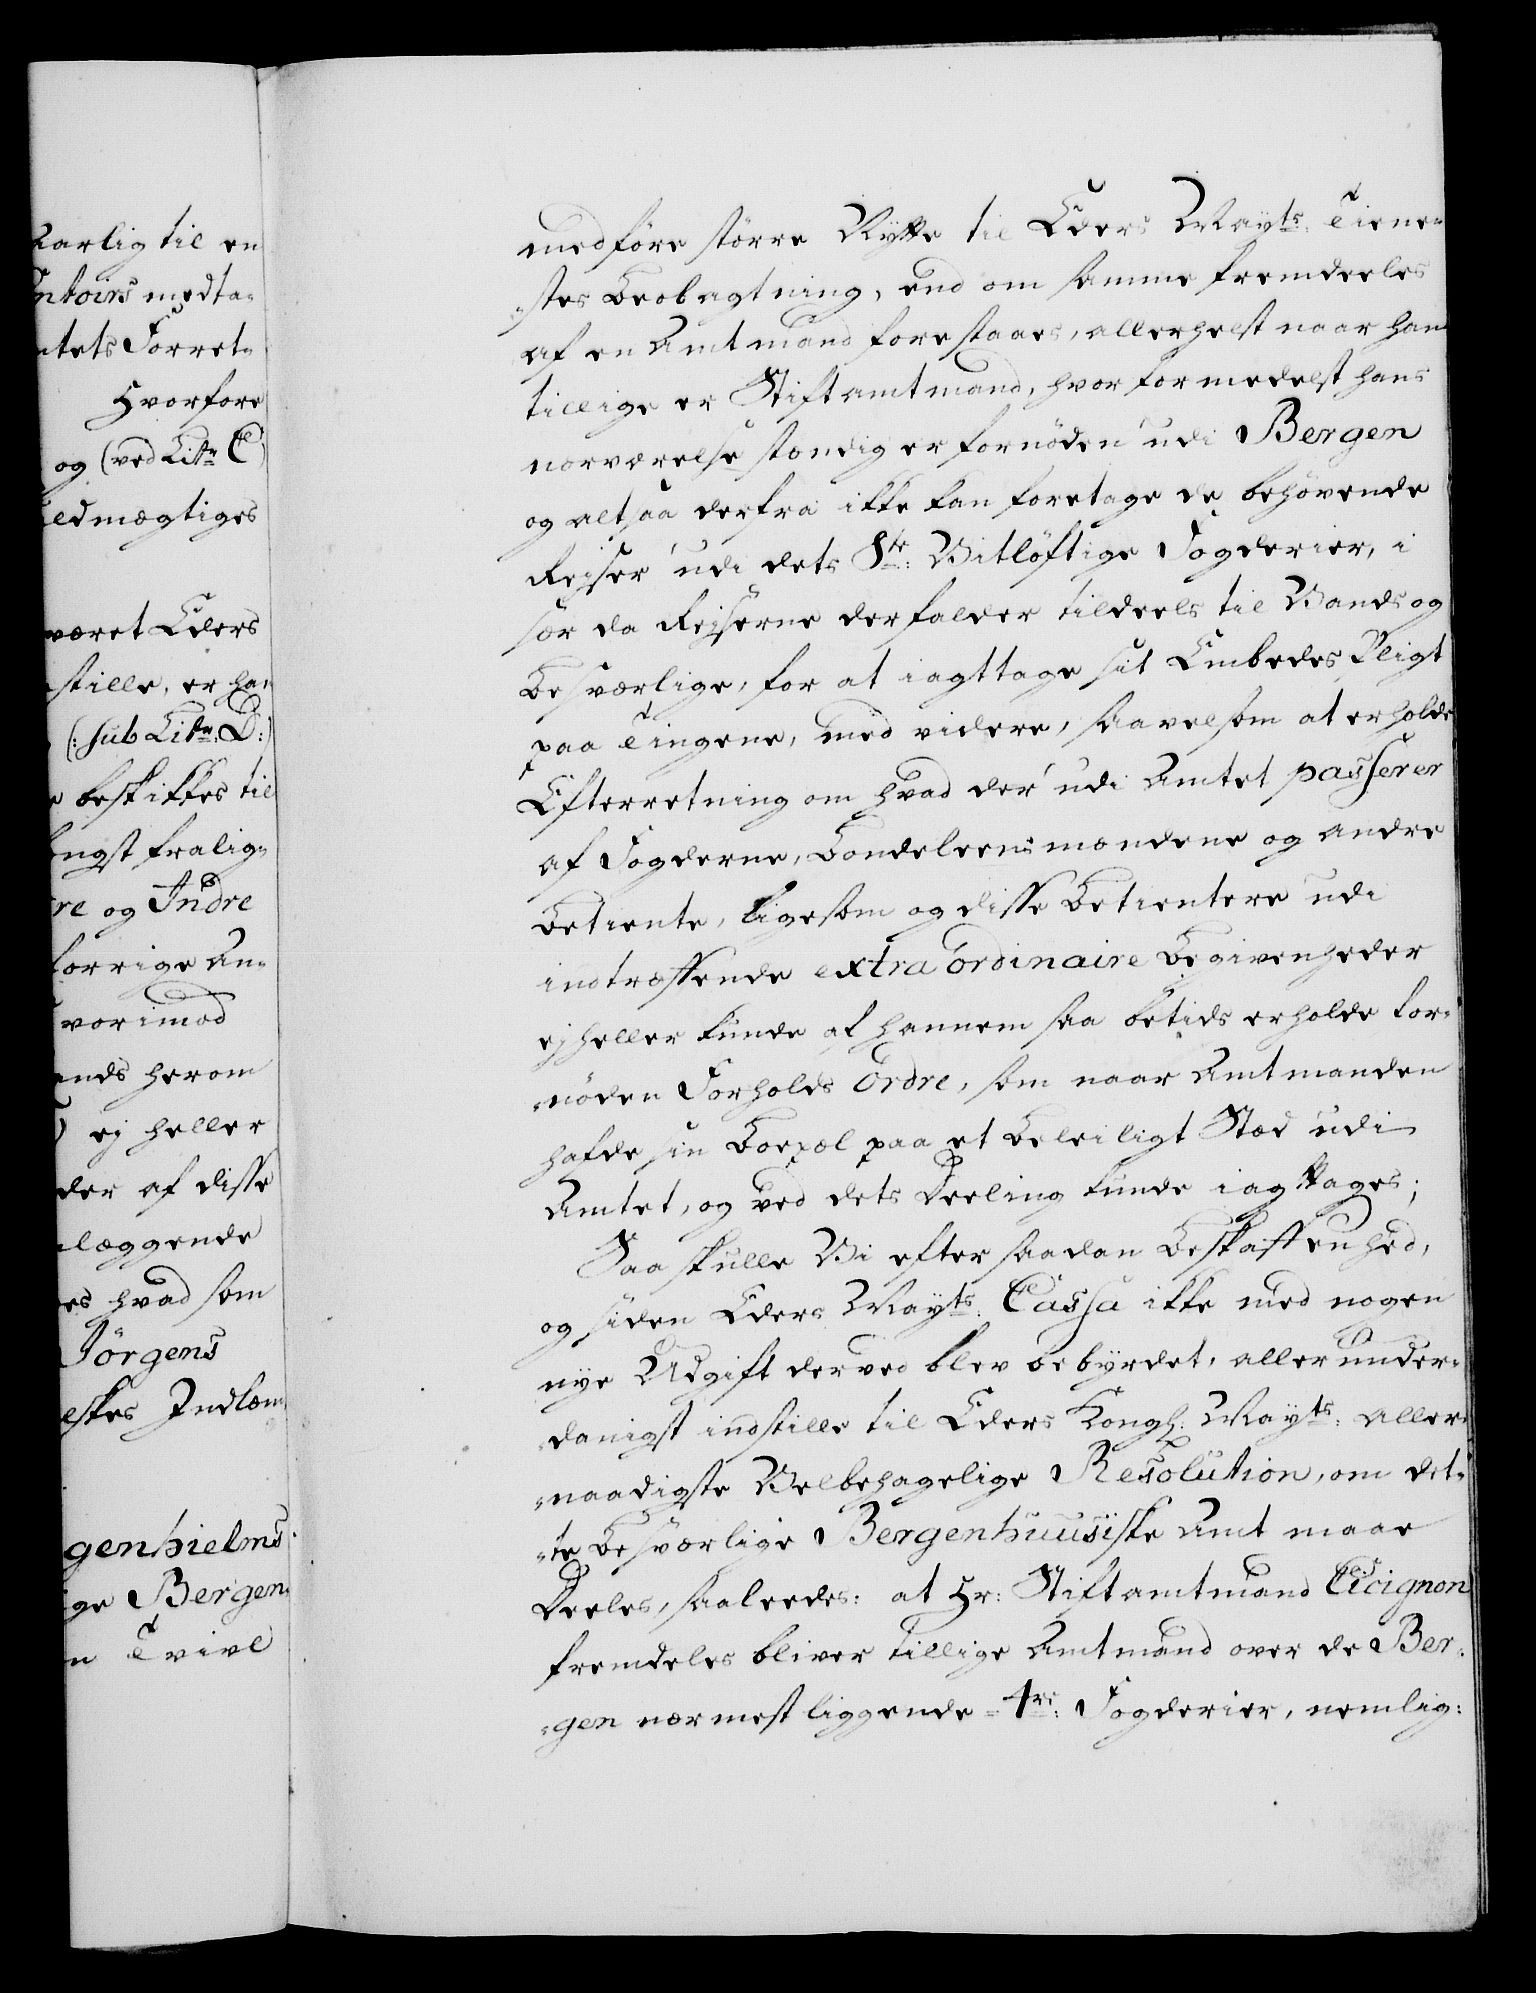 Aarlig til en
ntoirs medta-
ntets Forret-
Hvorfore
og (ved Litr. C
ldmægtiges
været Eders
stille, er ha-
(: sub Litr. D:)
e beskikkes til
ngst fralig-
re og Indre
forrige An-
vorimod
ands herom
) ej heller
der af disse
læggende
es hvad som
Jörgens
elskes Indkom-
genhielms
ge Bergen-
n Tvivl
medföre större Nytte til Eders Mayts. Tiene-
-stes Beobagtning, end om samme fremdeeles
af en Amtmand forestaaes, allerhelst naar han
tillige er Stiftamtmand, hvorformedelst hans
nærværelse stændig er fornöden udi Bergen
og altsaa derfra ikke kan foretage de behövende
Rejser udi dets 8te. Vitlöftige Fogderier, i
sær da Rejserne der falder tildeels til Vands og
besværlige, for at iagttage sit Embedes Pligt
paa Tingene, med videre, saavelsom at erholde
Efterretning om hvad der udi Amtet passerer
af Fogderne, Bondeleensmændene og andre
Betiente, ligesom og disse Betientere udi
indtræffende extra ordinaire Begivenheder
ej heller kunde af hannem saa betids erholde for-
-nöden Forholds Ordre, som naar Amtmanden
hafde sin Boepæl paa et beleiligt Stæd udi
Amtet, og ved dets Deeling kunde iagttages;
Saa skulle Vi efter saadan Beskaffenhed,
og siden Eders Mayts. Cassa ikke med nogen
nye Udgift derved blev bebyrdet, allerunder-
-danigst indstille til Eders Kongl. Mayts. aller-
-naadigste Velbehagelige Resolution, om det-
-te besværlige Bergenhuusiske Amt maae
Deeles, saaleedes: at Hr: Stiftamtmand Cicignon
fremdeles bliver tillige Amtmand over de Ber-
-gen nærmest liggende 4re. Fogderier, nemlig: